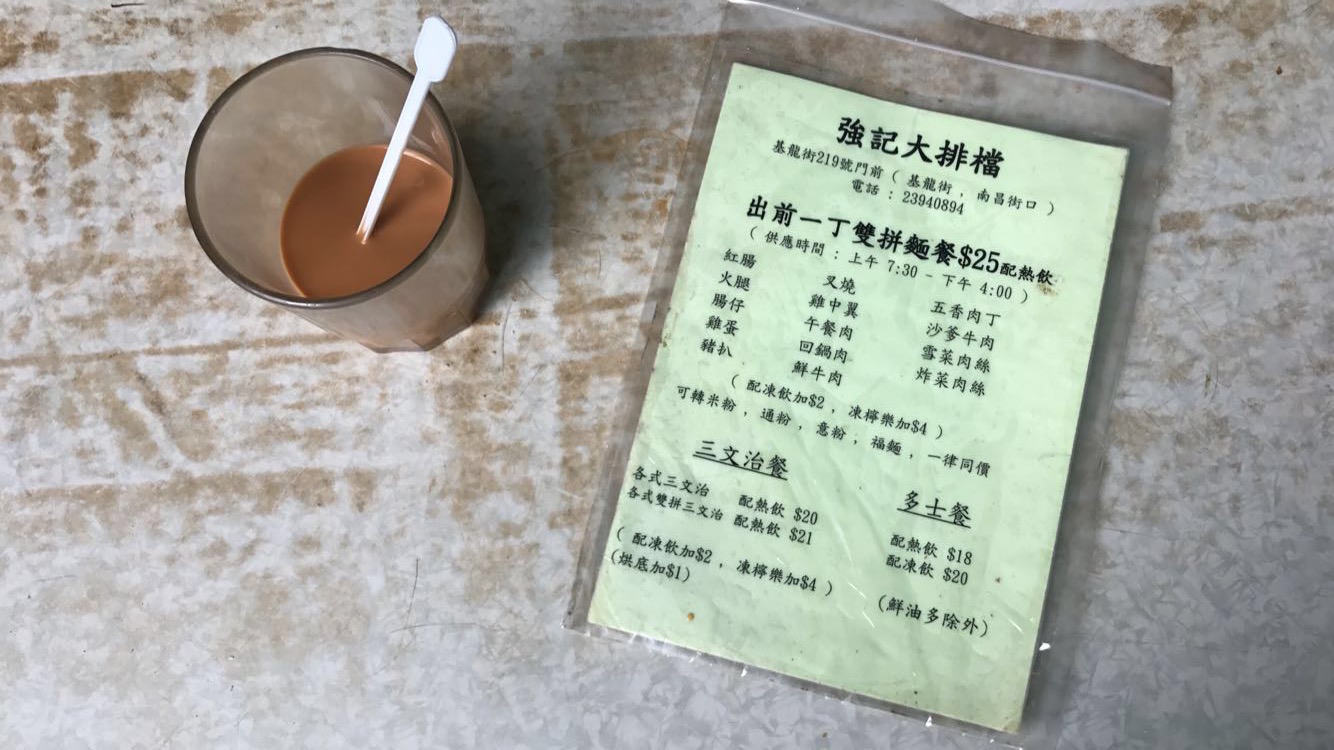 強記大排檔
基龍街219號門前 ( 基龍街 , 南昌街口 )
電話 : 23940894
出前一丁雙拼麵餐$25配熱飲
( 供應時間 : 上午 7:30 - 下午 4:00 )
紅腸 叉燒 五香肉丁
火腿 雞中翼 沙爹牛肉
腸仔 午餐肉 雪菜肉絲
雞蛋 回鍋肉 炸菜肉絲
豬扒 鮮牛肉
( 配凍飲加$2 , 凍檸樂加$4 )
可轉米粉 , 通粉 , 意粉 , 福麵 , 一律同價
三文治餐
各式三文治 配熱飲 $20
各式雙拼三文治 配熱飲 $21
( 配凍飲加$2 , 凍檸樂加$4 )
(烘底加$1)
多士餐
配熱飲 $18
配凍飲 $20
(鮮油多除外)